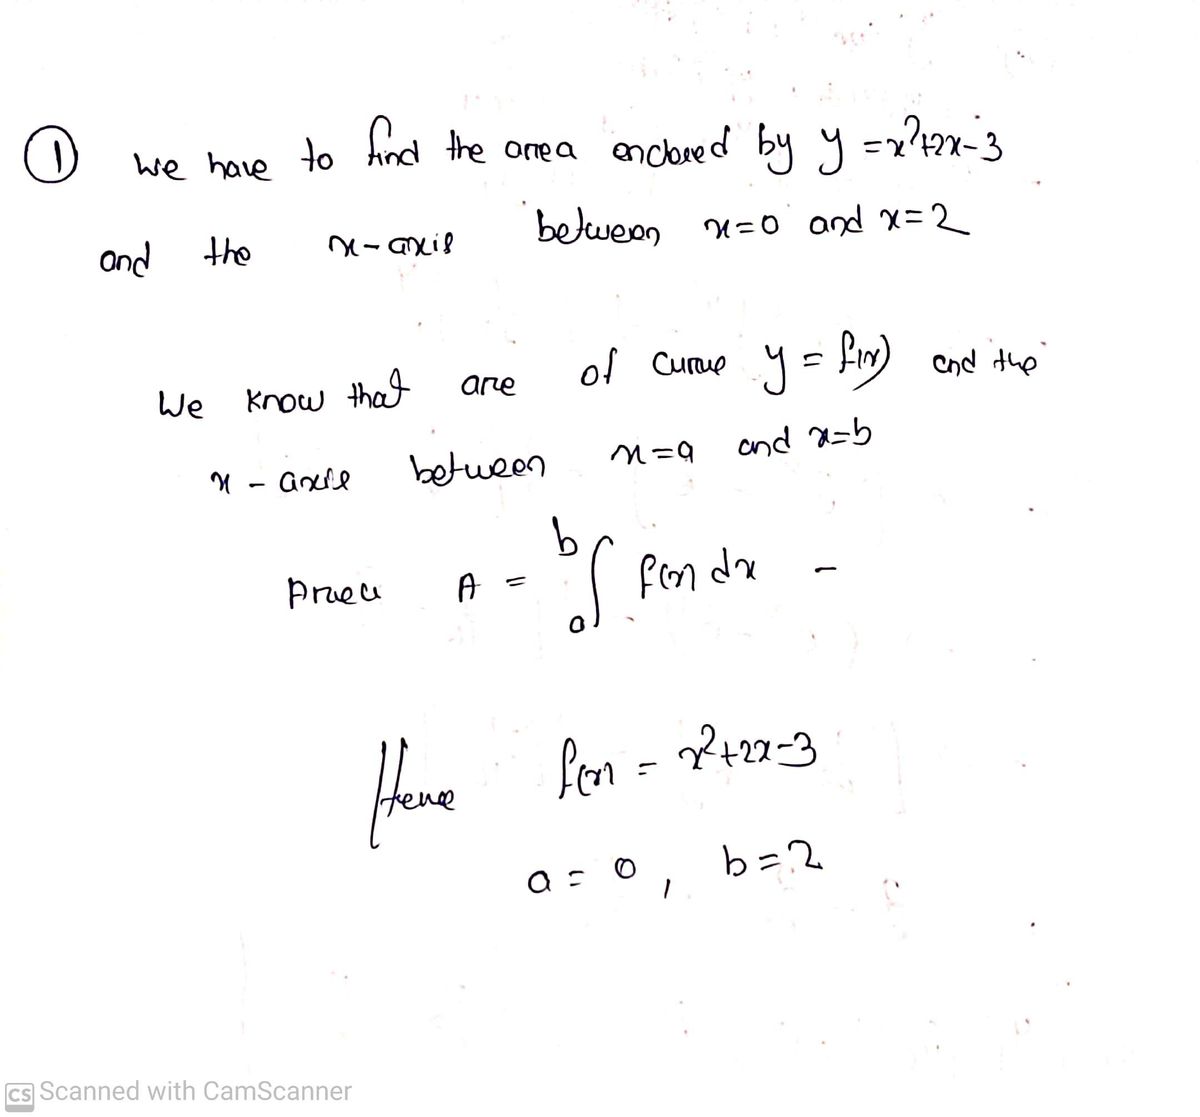 ① we have to find the area enclosed by y = x²+2x-3
and the x-axis between x=0 and x=2
We know that are of curve y = f(x) and the
x - axis between x=a and x=b
Area A = ∫ₐᵇ f(x) dx -
Hence f(x) = x²+2x-3
a = 0 , b = 2
CS Scanned with CamScanner